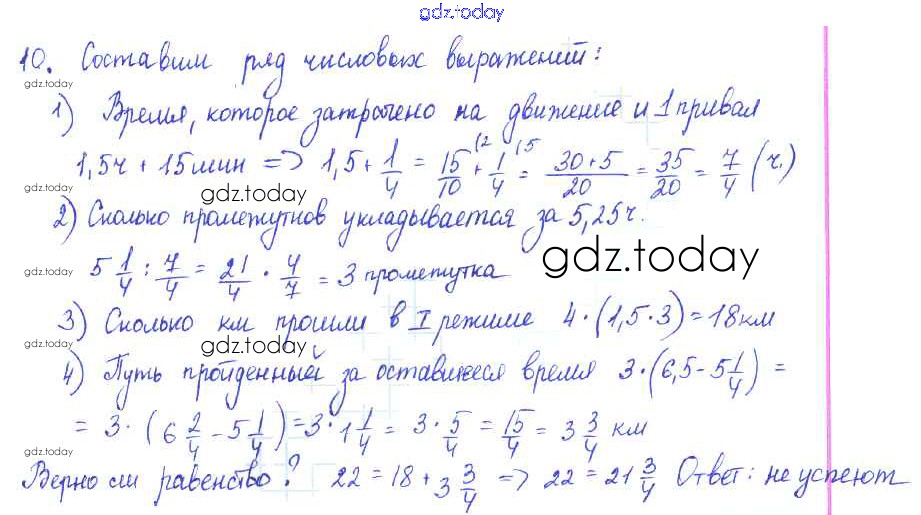 gdz.today
10. Составим ряд числовых выражений:
gdz.today
1) Время, которое затрачено на движение и 1 привал
1,5ч + 15мин => 1,5 + 1/4 = 15/10 (2 + 1/4 (5 = 30+5/20 = 35/20 = 7/4 (ч.)
gdz.today
gdz.today
2) Сколько промежутков укладывается за 5,25ч.
gdz.today
gdz.today
5 1/4 : 7/4 = 21/4 · 4/7 = 3 промежутка
3) Сколько км прошли в I режиме 4·(1,5·3)=18км
gdz.today
gdz.today
4) Путь пройденный за оставшееся время 3·(6,5 - 5 1/4) =
= 3·(6 2/4 - 5 1/4) = 3·1 1/4 = 3·5/4 = 15/4 = 3 3/4 км
gdz.today
Верно ли равенство? 22 = 18 + 3 3/4 => 22 = 21 3/4 Ответ: не успеют